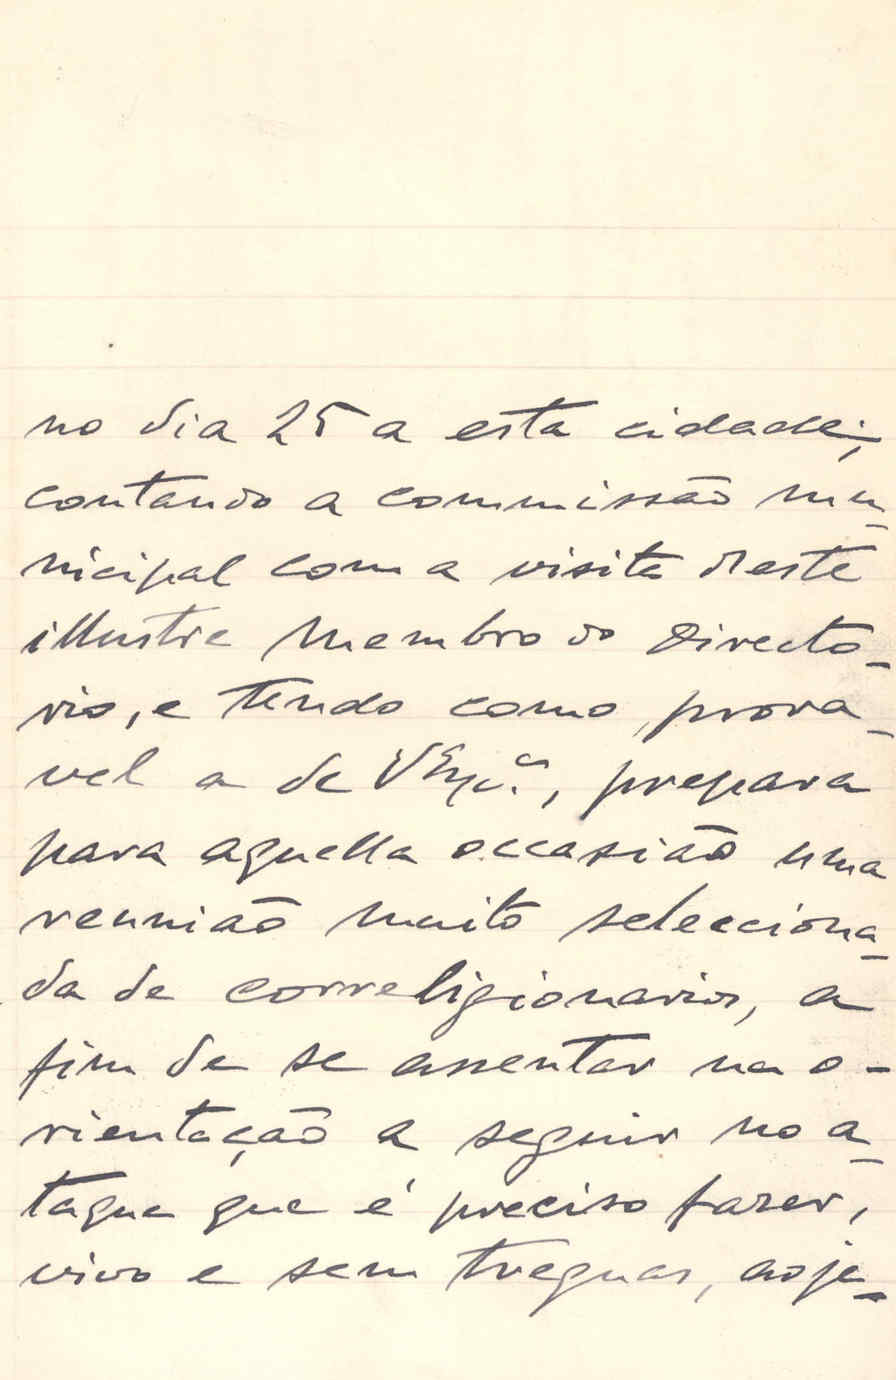 no dia 25 a esta cidade;
contando a commissão mu-
nicipal com a visita d'este
illustre membro do Directo-
rio, e tendo como prova-
vel a de V Exc.ª, prepara
para aquella occasião uma
reunião muito selecciona-
da de correligionarios, a
fim de se assentar na o-
rientação a seguir no a-
taque que é preciso fazer,
vivo e sem treguas, ao je-